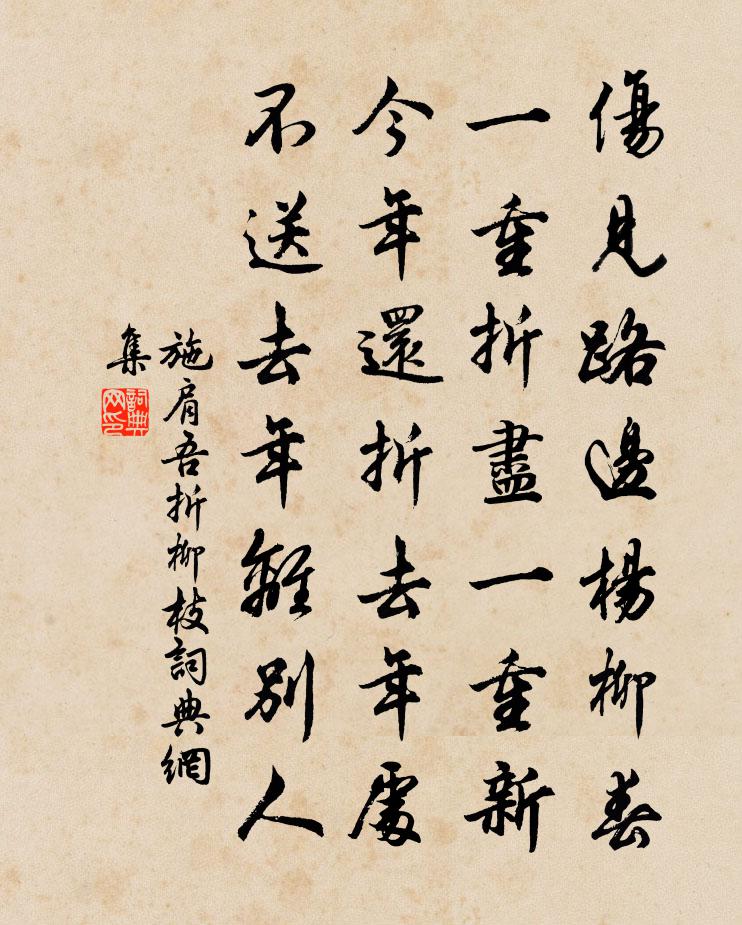 傷見路邊楊柳春
一重折盡一重新
今年還折去年處
不送去年離別人
施肩吾折柳枝詞典網
集
詞典網印